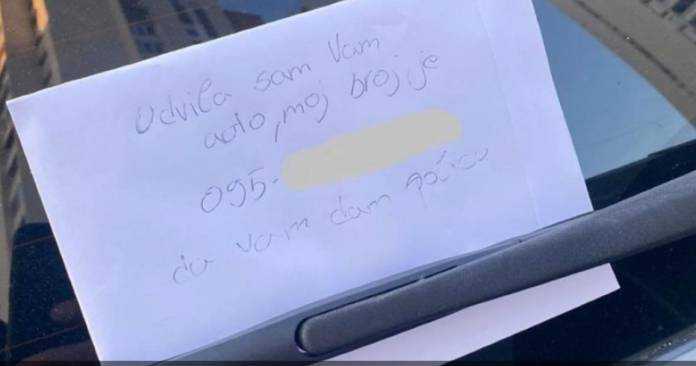 Udvila sam Vam
auto, moj broj je
095-
da vam dam